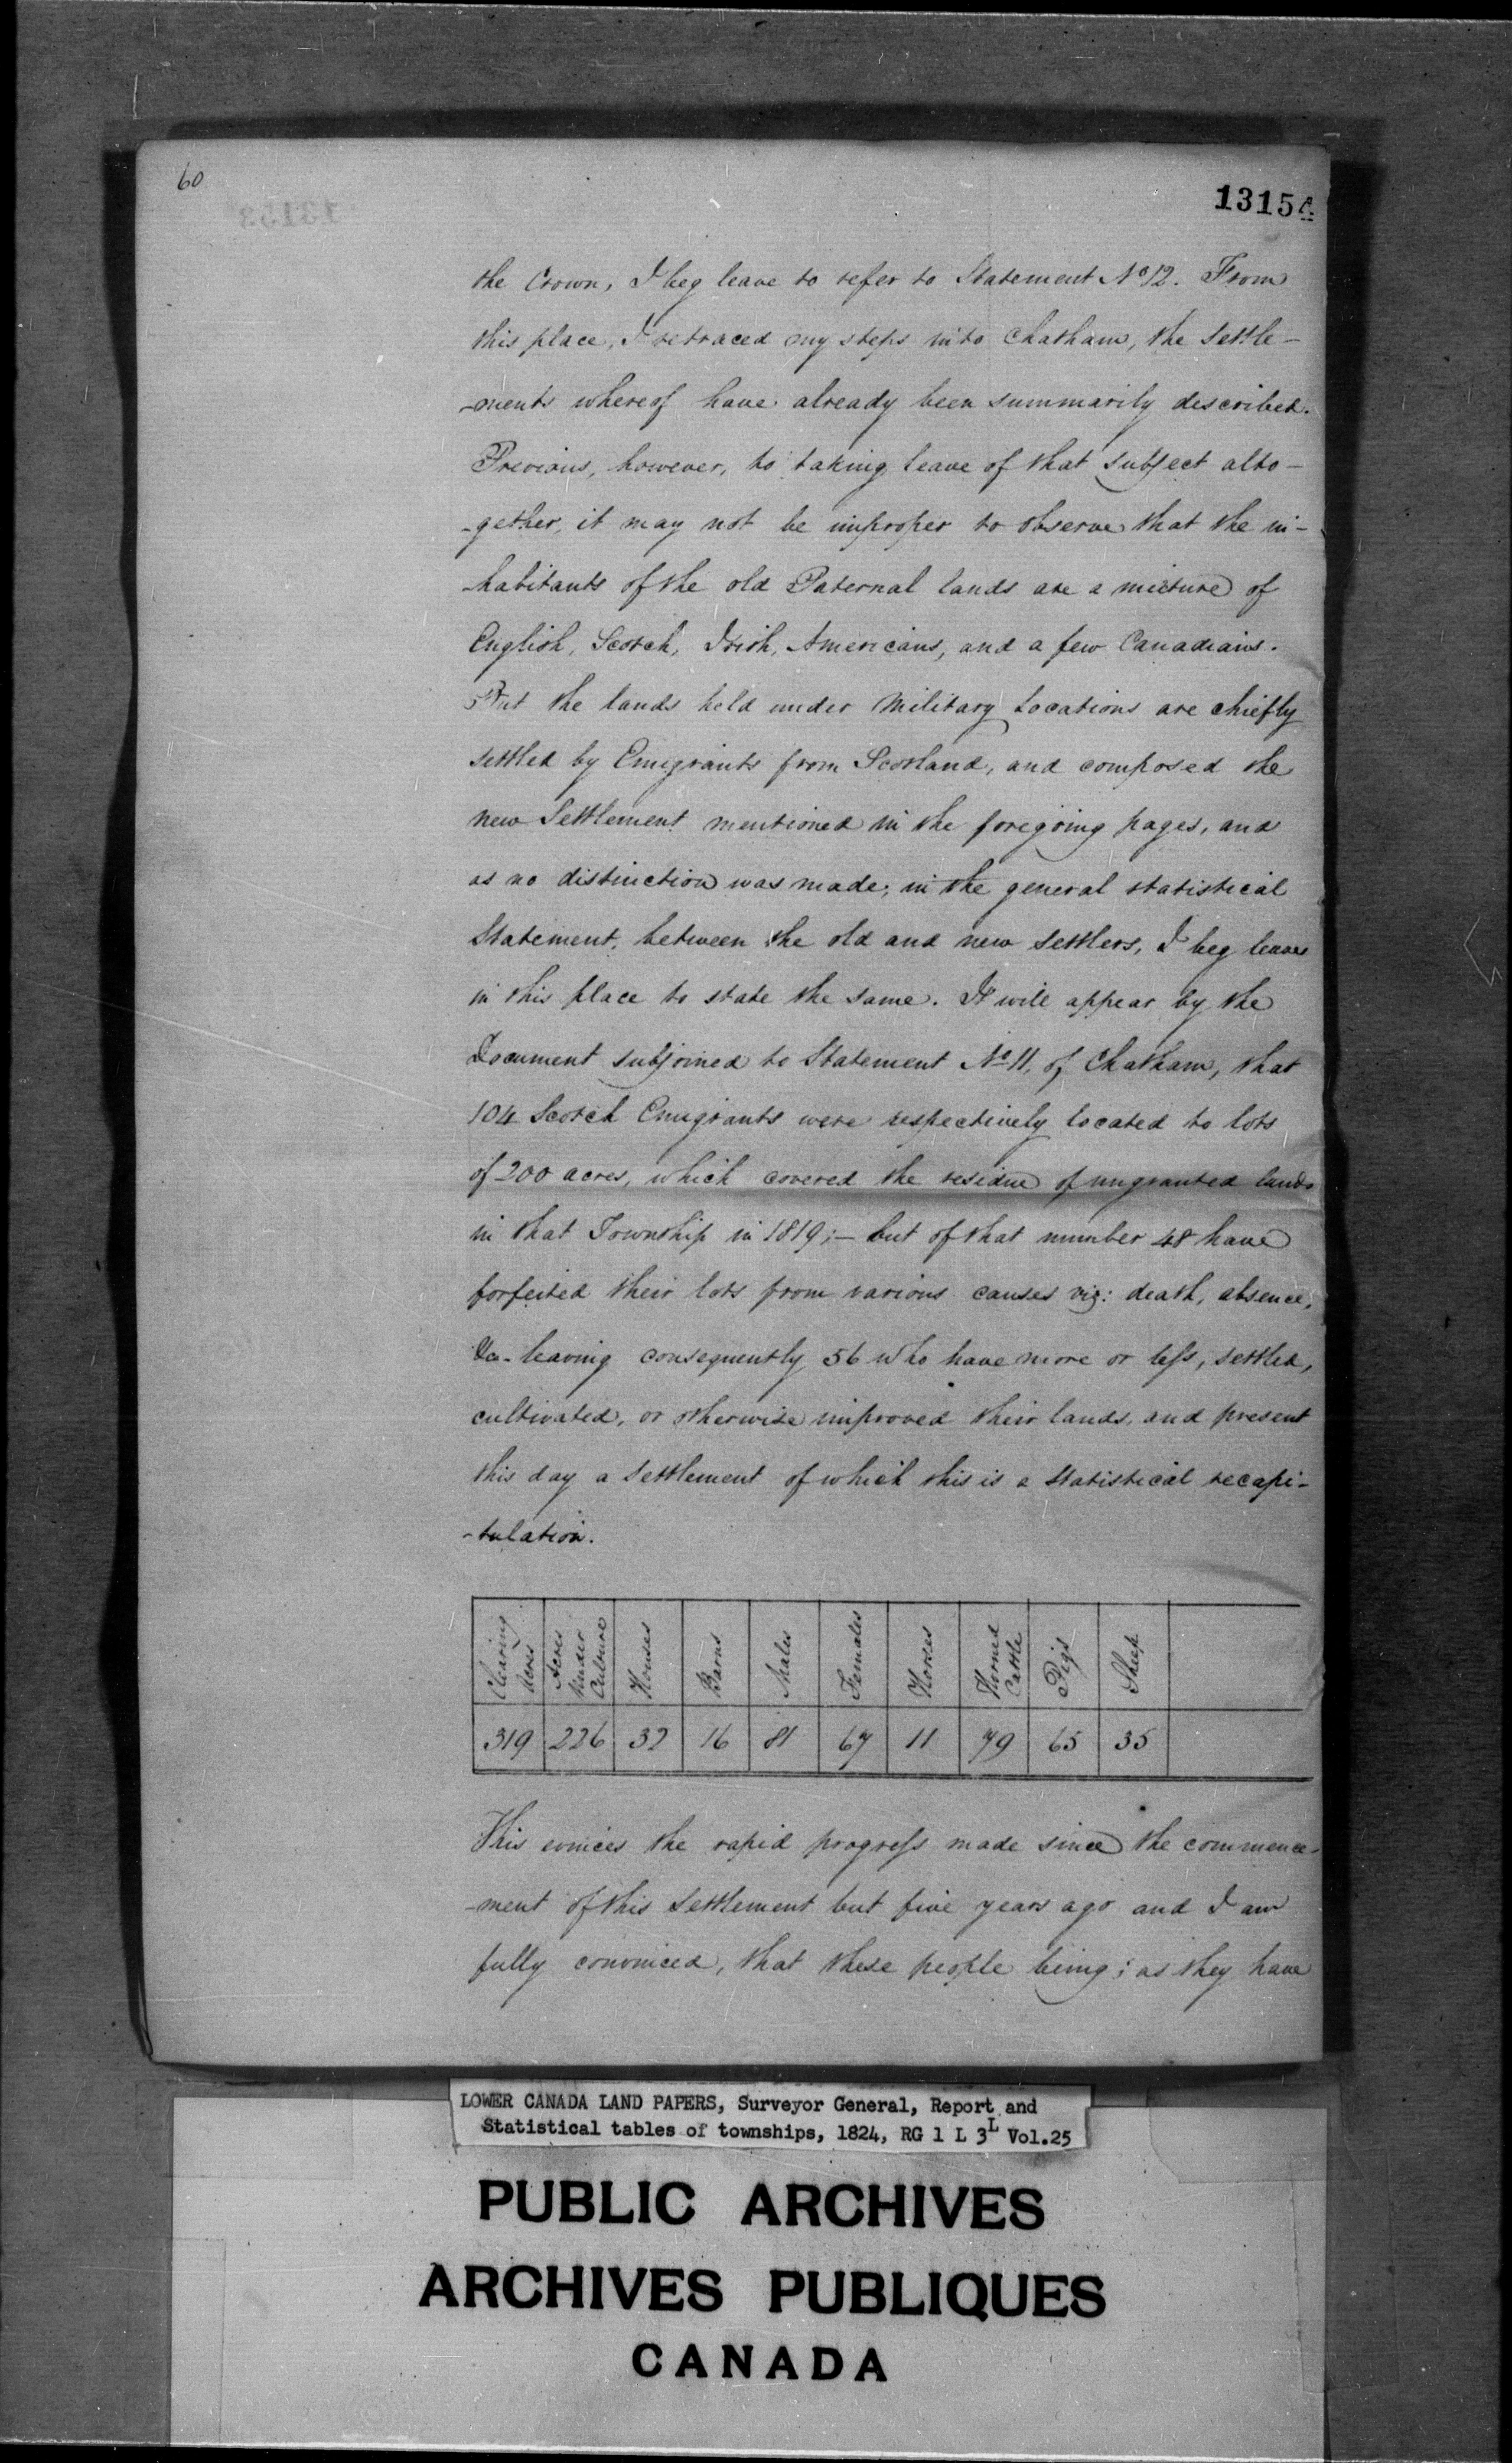 60
13154
the Crown, I beg leave to refer to Statement No 12. From
this place, I retraced my steps into Chatham, the Settle-
-ments whereof have already been summarily described.
Previous, however, to taking leave of that subject alto-
-gether, it may not be improper to observe that the in-
-habitants of the old Paternal lands are a mixture of
English, Scotch, Irish, Americans, and a few Canadians.
But the lands held under Military Locations are chiefly
settled by Emigrants from Scotland, and composed the
new Settlement mentioned in the foregoing pages, and
as no distinction was made, in the general statistical
Statement, between the old and new Settlers, I beg leave
in this place to state the same. It will appear by the
Document subjoined to Statement No 11, of Chatham, that
104 Scotch Emigrants were respectively located to lots
of 200 acres, which covered the residue of ungranted lands
in that Township in 1819;- but of that number 48 have
forfeited their lots from various causes viz: death, absence,
&c- leaving consequently 56 who have more or less, settled,
cultivated, or otherwise improved their lands, and present
this day a Settlement of which this is a Statistical recapi-
-tulation.
Clearing Acres | Acres Under Culture | Houses | Barns | Males | Females | Horses | Horned Cattle | Pigs | Sheep
319 | 226 | 32 | 16 | 81 | 67 | 11 | 79 | 65 | 35
This evinces the rapid progress made since the commence-
-ment of this Settlement but five years ago and I am
fully convinced, that these people being; as they have
LOWER CANADA LAND PAPERS, Surveyor General, Report and
Statistical tables of townships, 1824, RG 1 L 3L Vol.25
PUBLIC ARCHIVES
ARCHIVES PUBLIQUES
CANADA